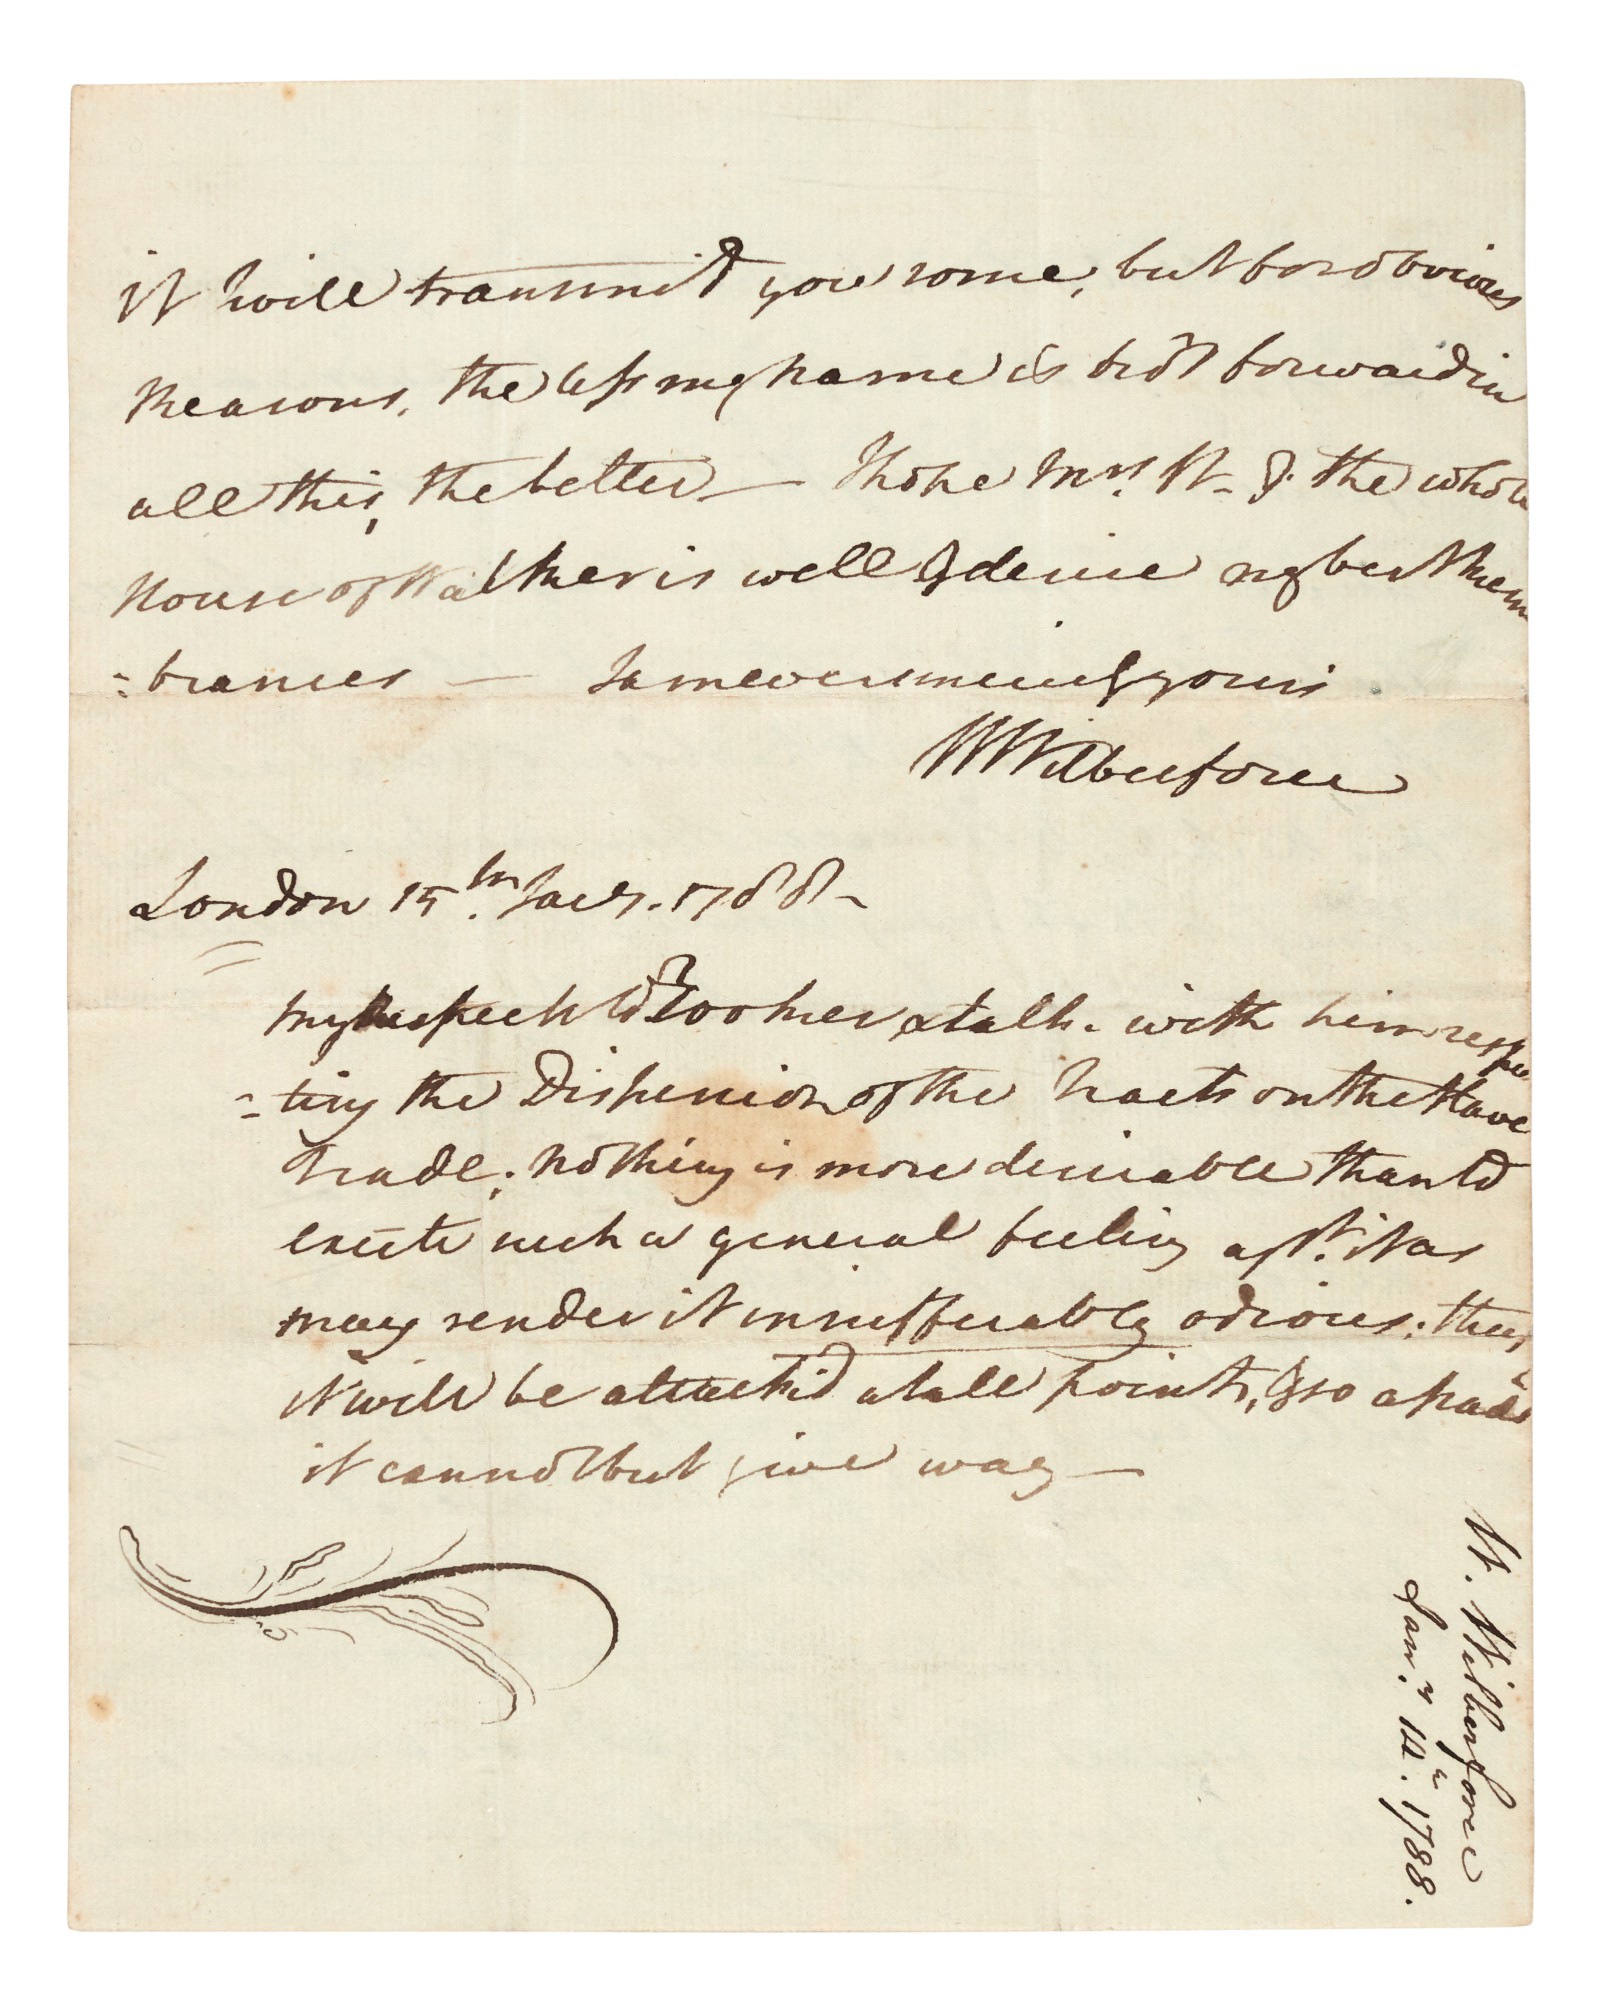 it I will transmit you some, but for obvious
Reasons, the less my name is bro't forward in
all this, the better — I hope Mrs. W- & the whole
House of Walker is well & desire my best Remem
=brances — I am ever sincerely yours
W Wilberforce
London 15th. Jany. 1788 -
my Respects to Cookes, & talk with him respec
=ting the Dispersion of the Tracts on the Slave
Trade; nothing is more desirable than to
excite such a general feeling agst. it as
may render it insufferably odious; thus
it will be attack'd at all points, & so assail'd
it cannot but give way —
W. Wilberforce
Jany. 1788.